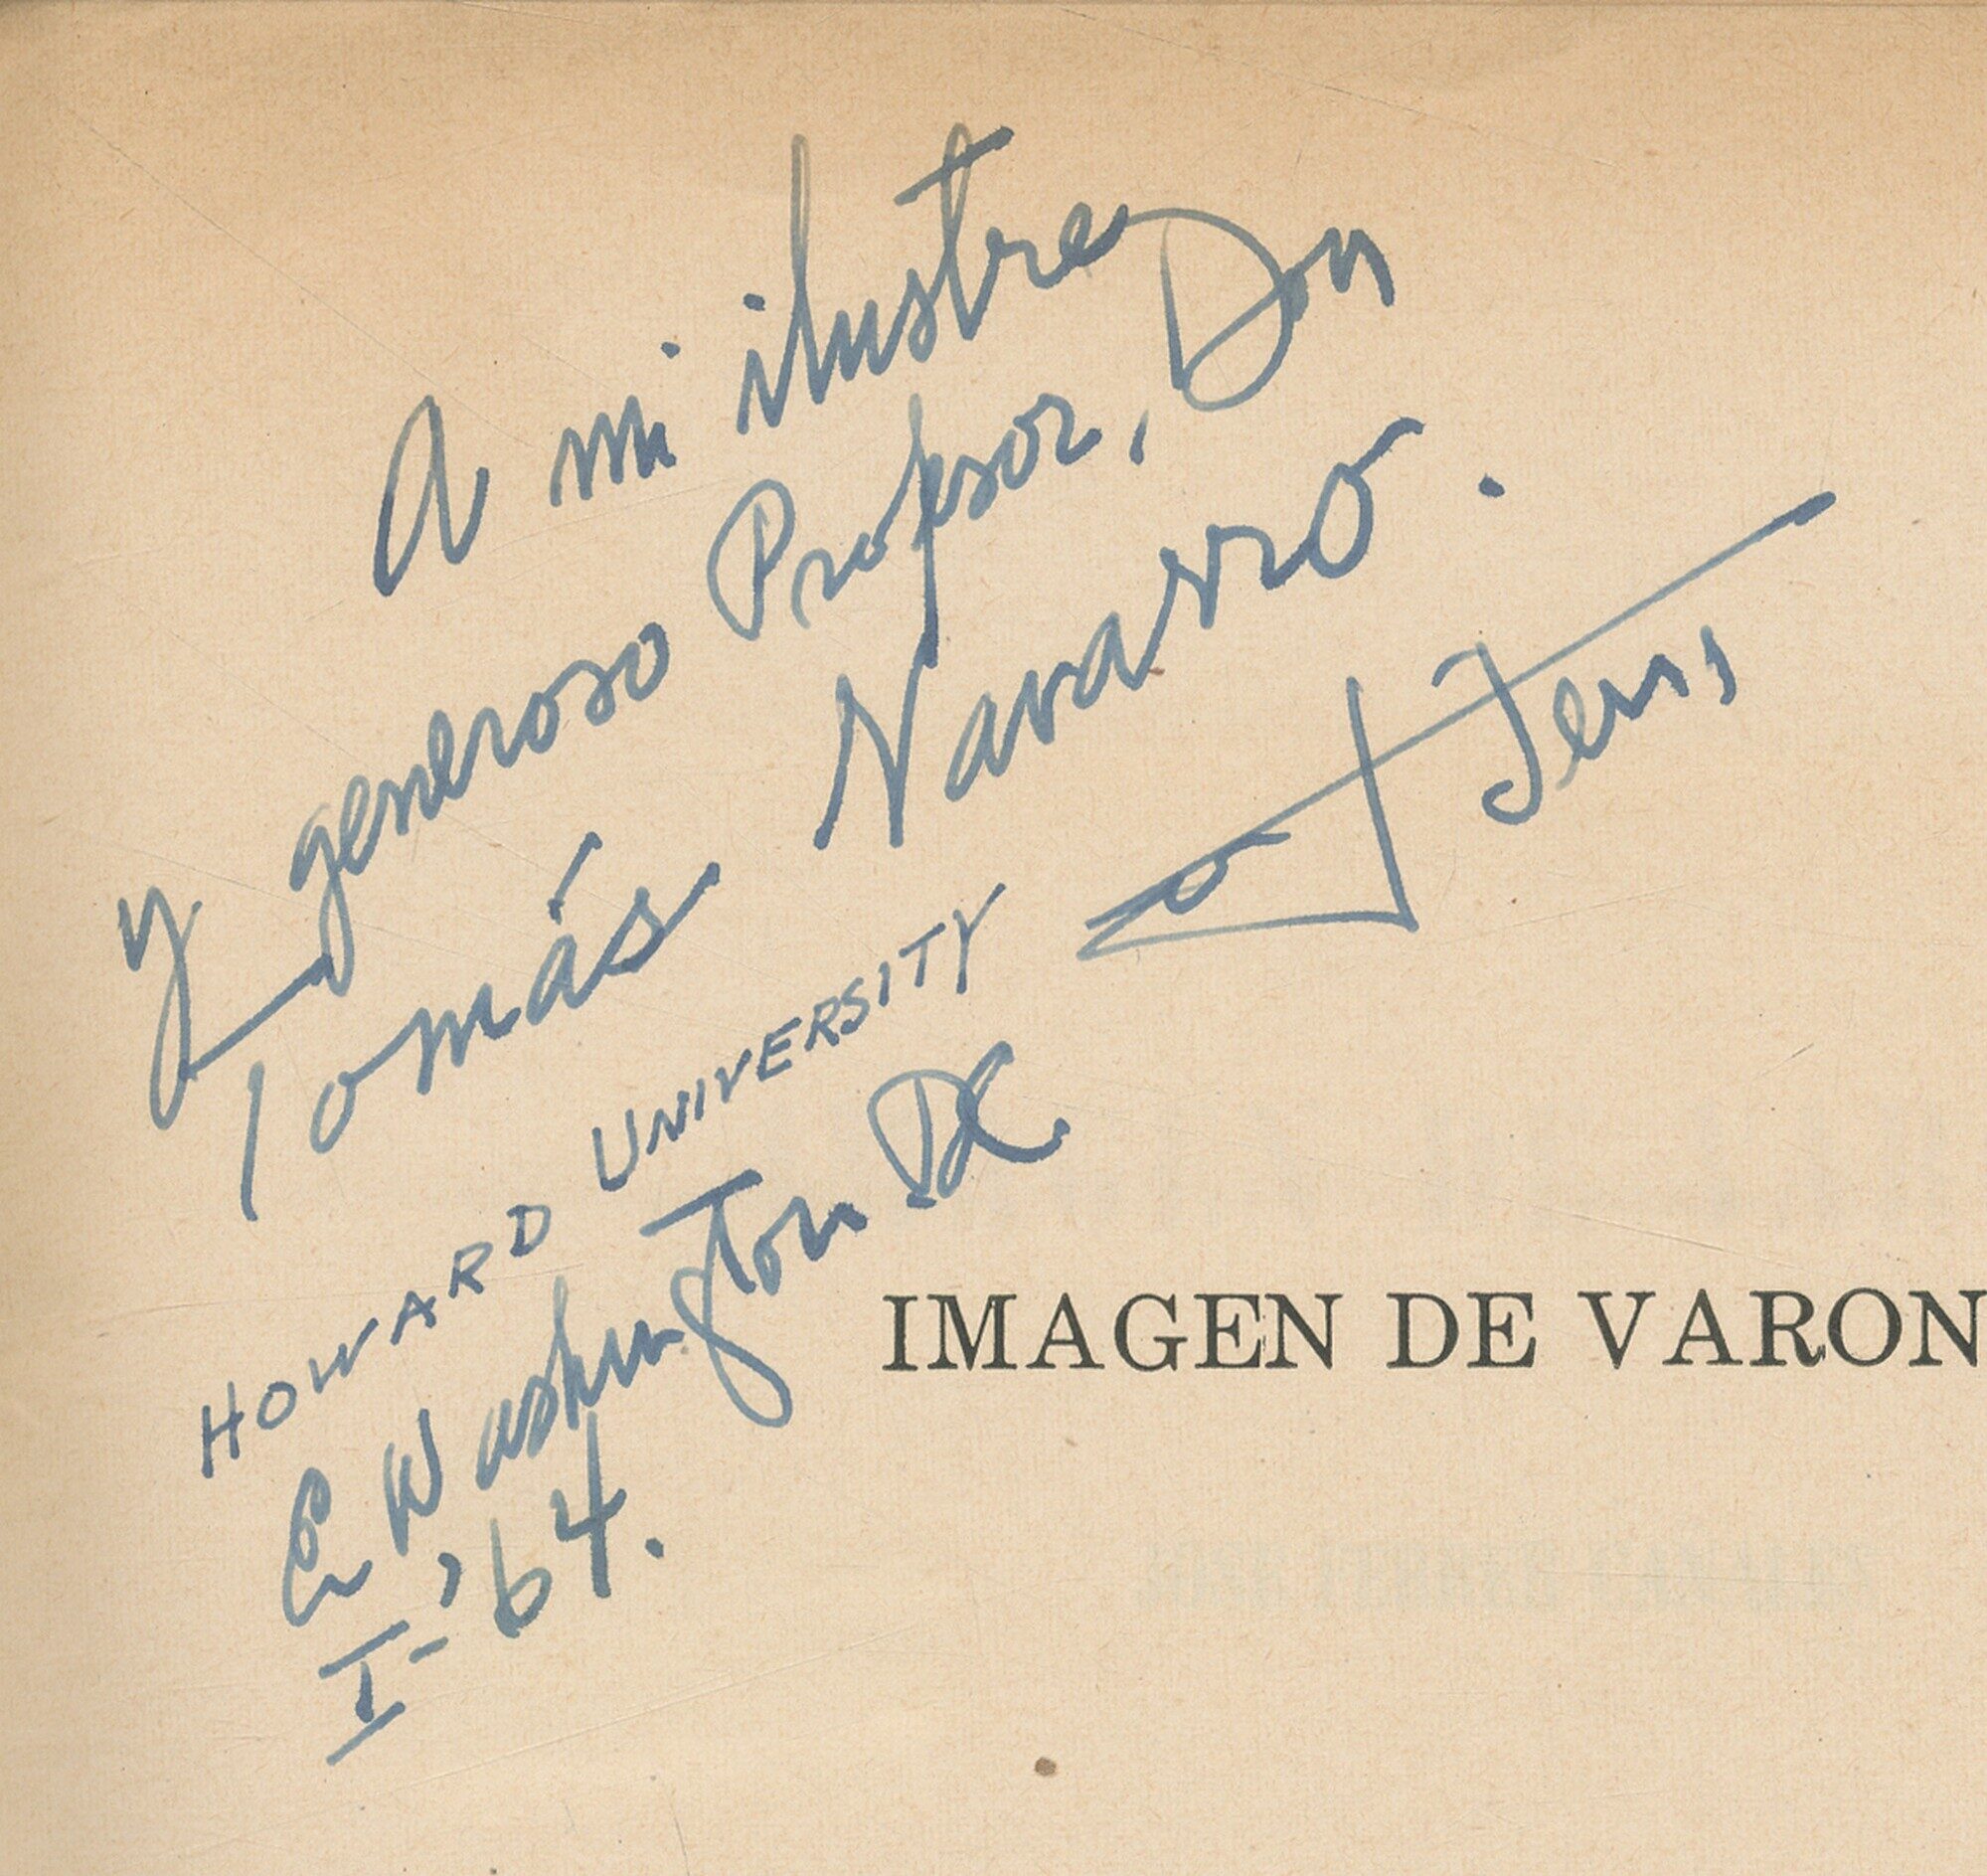 A mi ilustre
y generoso Profesor, Don
Tomás Navarro.
HOWARD UNIVERSITY
En Washington D.C.
I-'64.
IMAGEN DE VARON